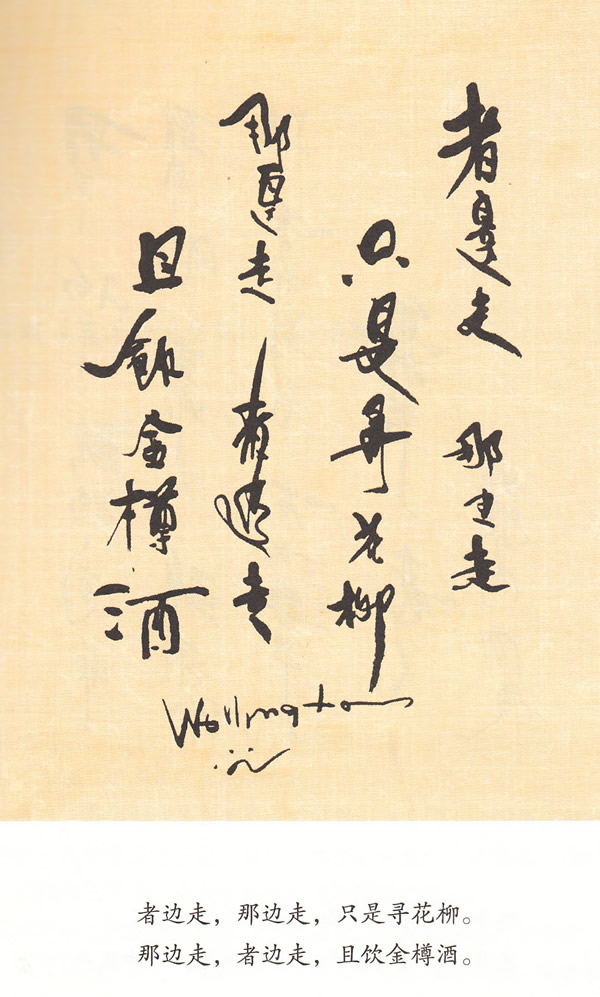 者邊走 那邊走
只是尋花柳
那邊走 者邊走
且飲金樽酒
Wellington
者边走，那边走，只是寻花柳。
那边走，者边走，且饮金樽酒。